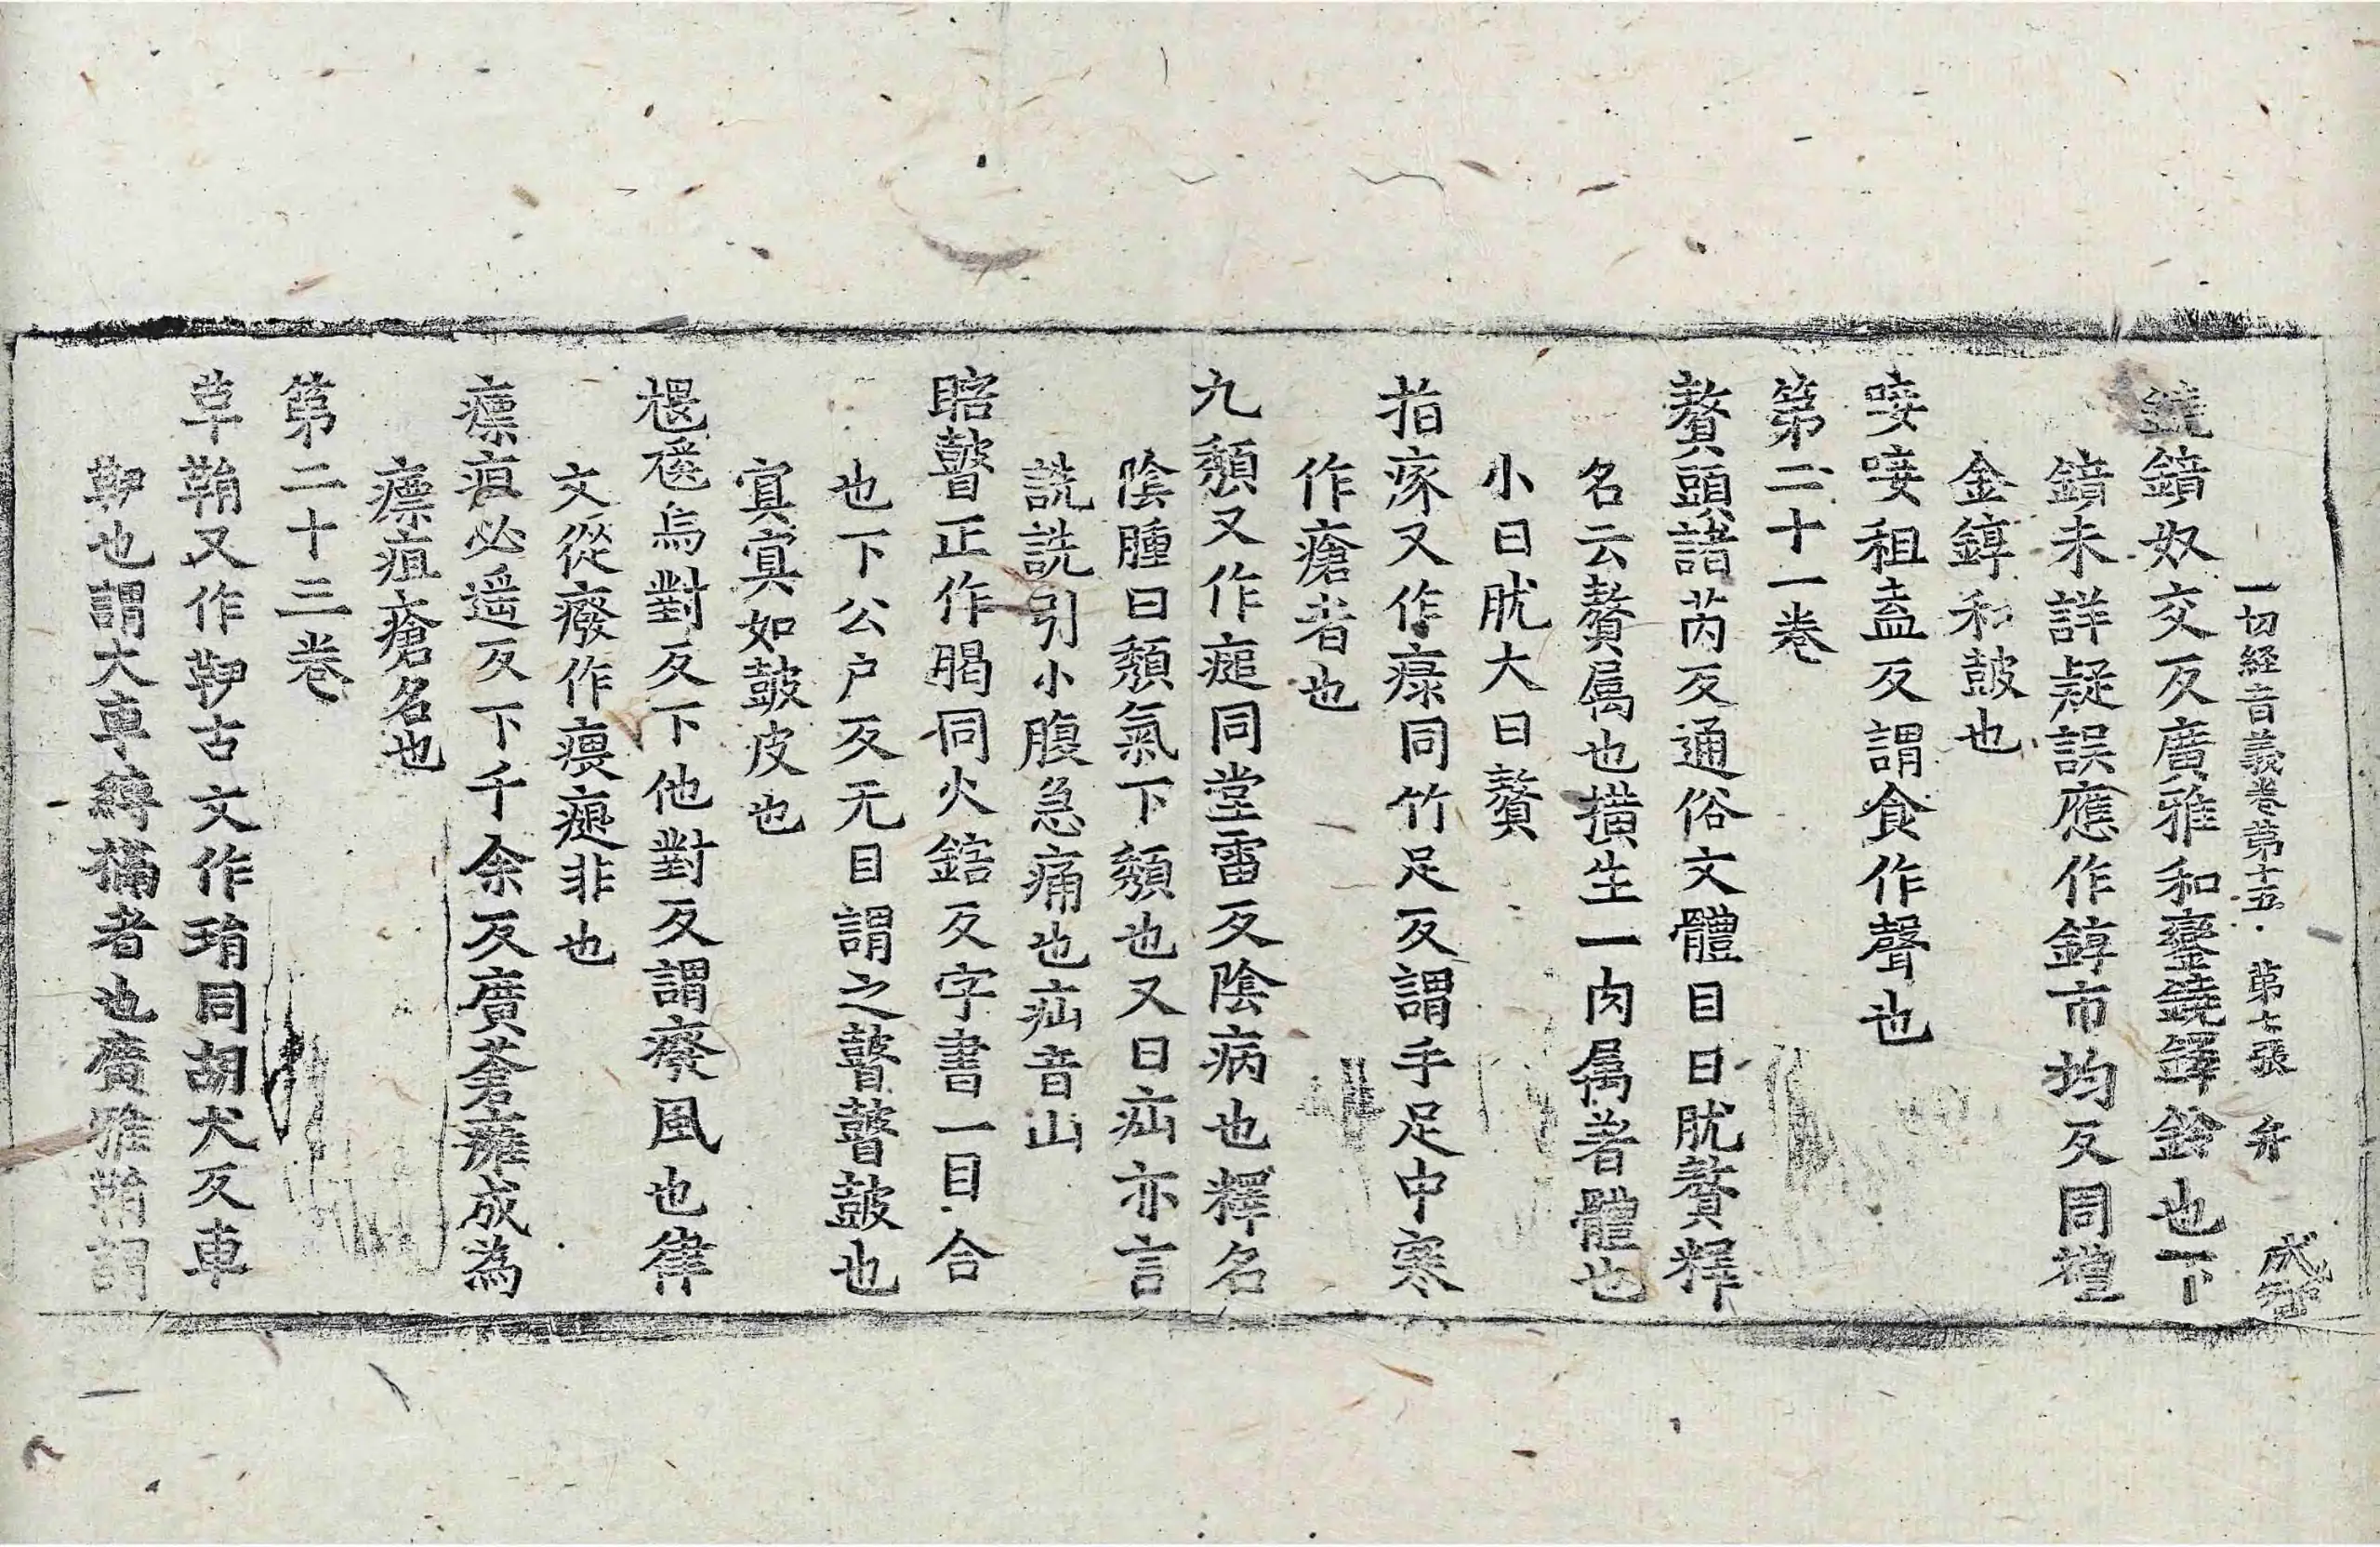 一切経音義卷第十五 第七張 弁
鐃錥奴交反廣雅和鑾鐃鐸鈴也下
錥未詳疑誤應作錞市均反同壇
金錞和鼓也
唼唼祖盍反謂食作聲也
第二十一卷
贅頭諸芮反通俗文體目曰肬贅釋
名云贅属也撗生一肉属著體也
小曰肬大曰贅
指瘃又作瘃同竹足反謂手足中寒
作瘡者也
九頹又作㿗同堂雷反陰病也釋名
陰腫曰頹氣下頹也又曰疝亦言
詵詵引小腹急痛也疝音山
䁋瞽正作䁍同火鎋反字書一目合
也下公户反无目謂之瞽瞽鼓也
寘寘如鼓皮也
椳㾯烏對反下他對反謂癈風也律
文從癈作㾯㾼非也
瘭疽必遥反下千余反廣蒼癰成為
瘭疽瘡名也
第二十三卷
草鞘又作䩠古文作琑同胡犬反車
䩠也謂大車縛𨋎者也廣雅鞘謂